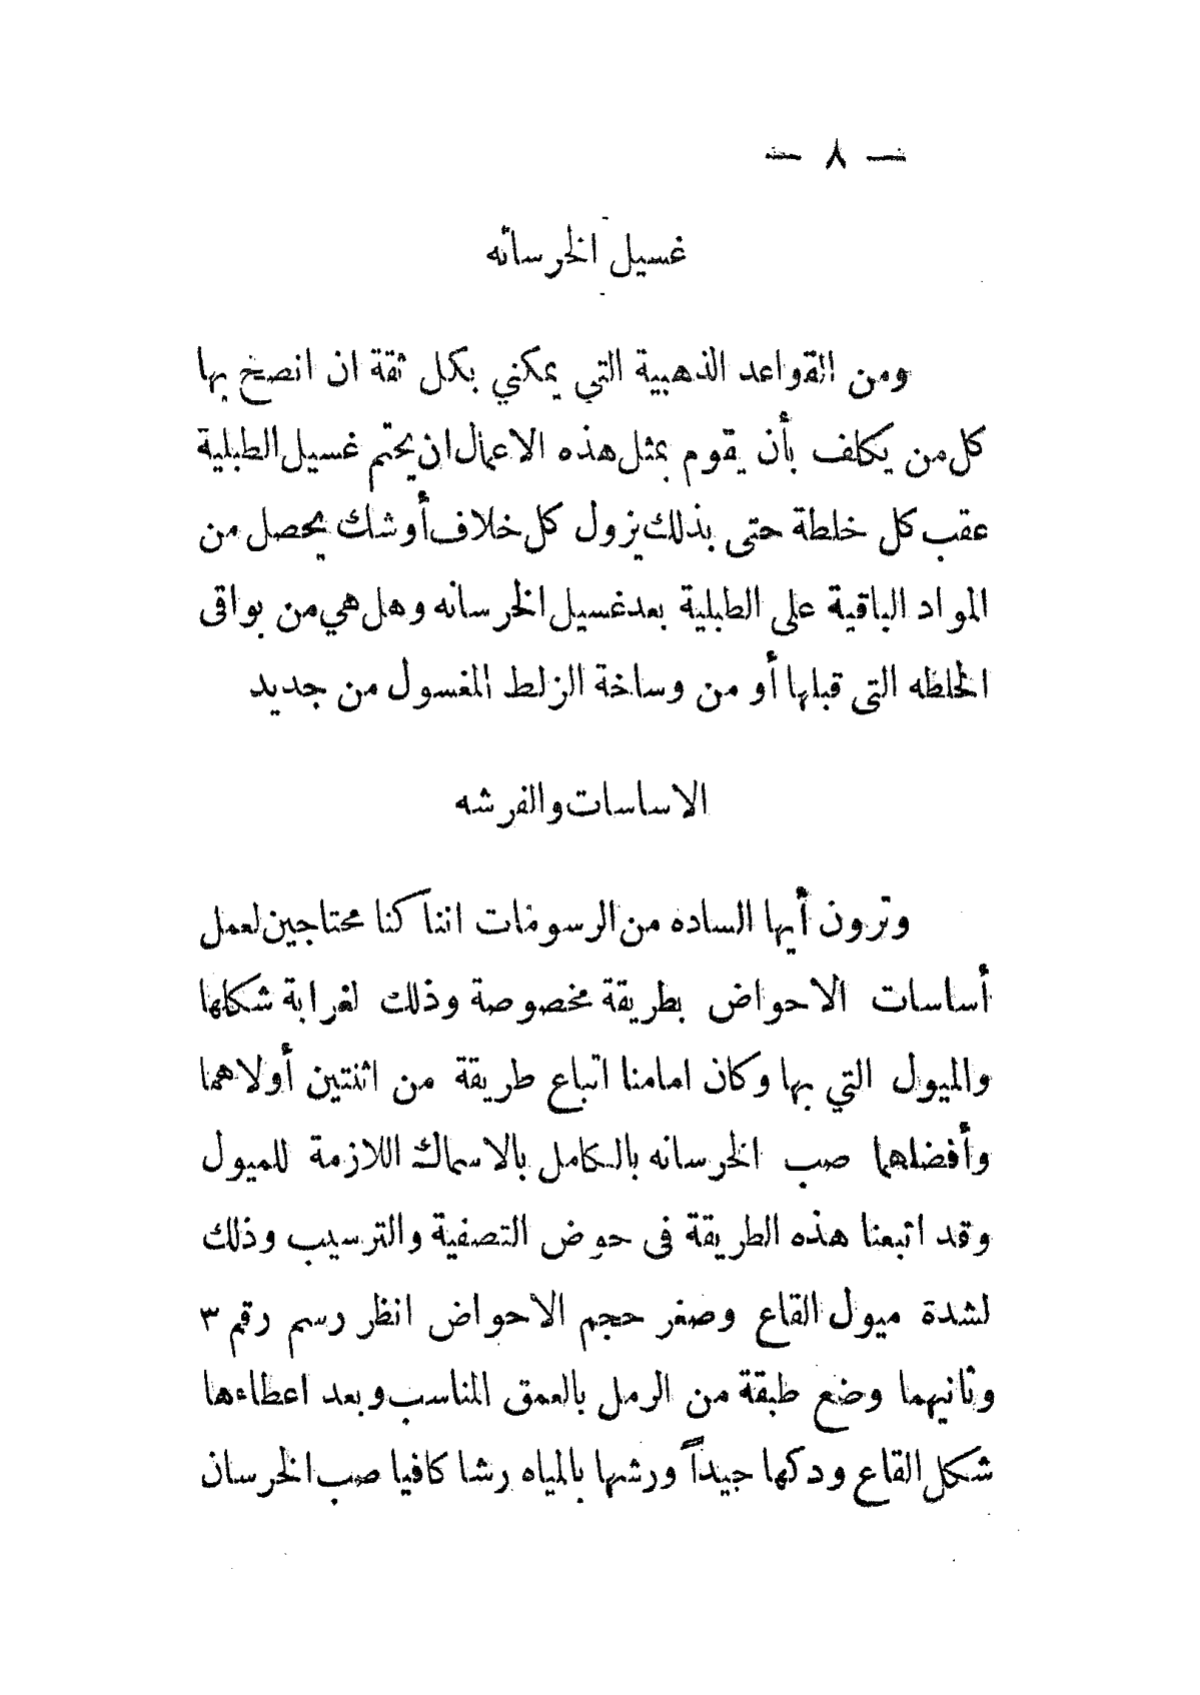 — ٨ —
غسيل الخرسانه
ومن القواعد الذهبية التي يمكني بكل ثقة ان انصح بها
كل من يكلف بأن يقوم بمثل هذه الاعمال ان يحتم غسيل الطبلية
عقب كل خلطة حتى بذلك يزول كل خلاف أو شك يحصل من
المواد الباقية على الطبلية بعد غسيل الخرسانه وهل هي من بواقى
الخلطه التى قبلها أو من وساخة الزلط المغسول من جديد
الاساسات والفرشه
وترون أيها الساده من الرسومات اننا كنا محتاجين لعمل
أساسات الاحواض بطريقة مخصوصة وذلك لغرابة شكلها
والميول التي بها وكان امامنا اتباع طريقة من اثنتين أولاهما
وأفضلهما صب الخرسانه بالكامل بالاسماك اللازمة للميول
وقد اتبعنا هذه الطريقة فى حوض التصفية والترسيب وذلك
لشدة ميول القاع وصغر حجم الاحواض انظر رسم رقم ٣
وثانيهما وضع طبقة من الرمل بالعمق المناسب وبعد اعطاءها
شكل القاع ودكها جيداً ورشها بالمياه رشا كافيا صب الخرسان